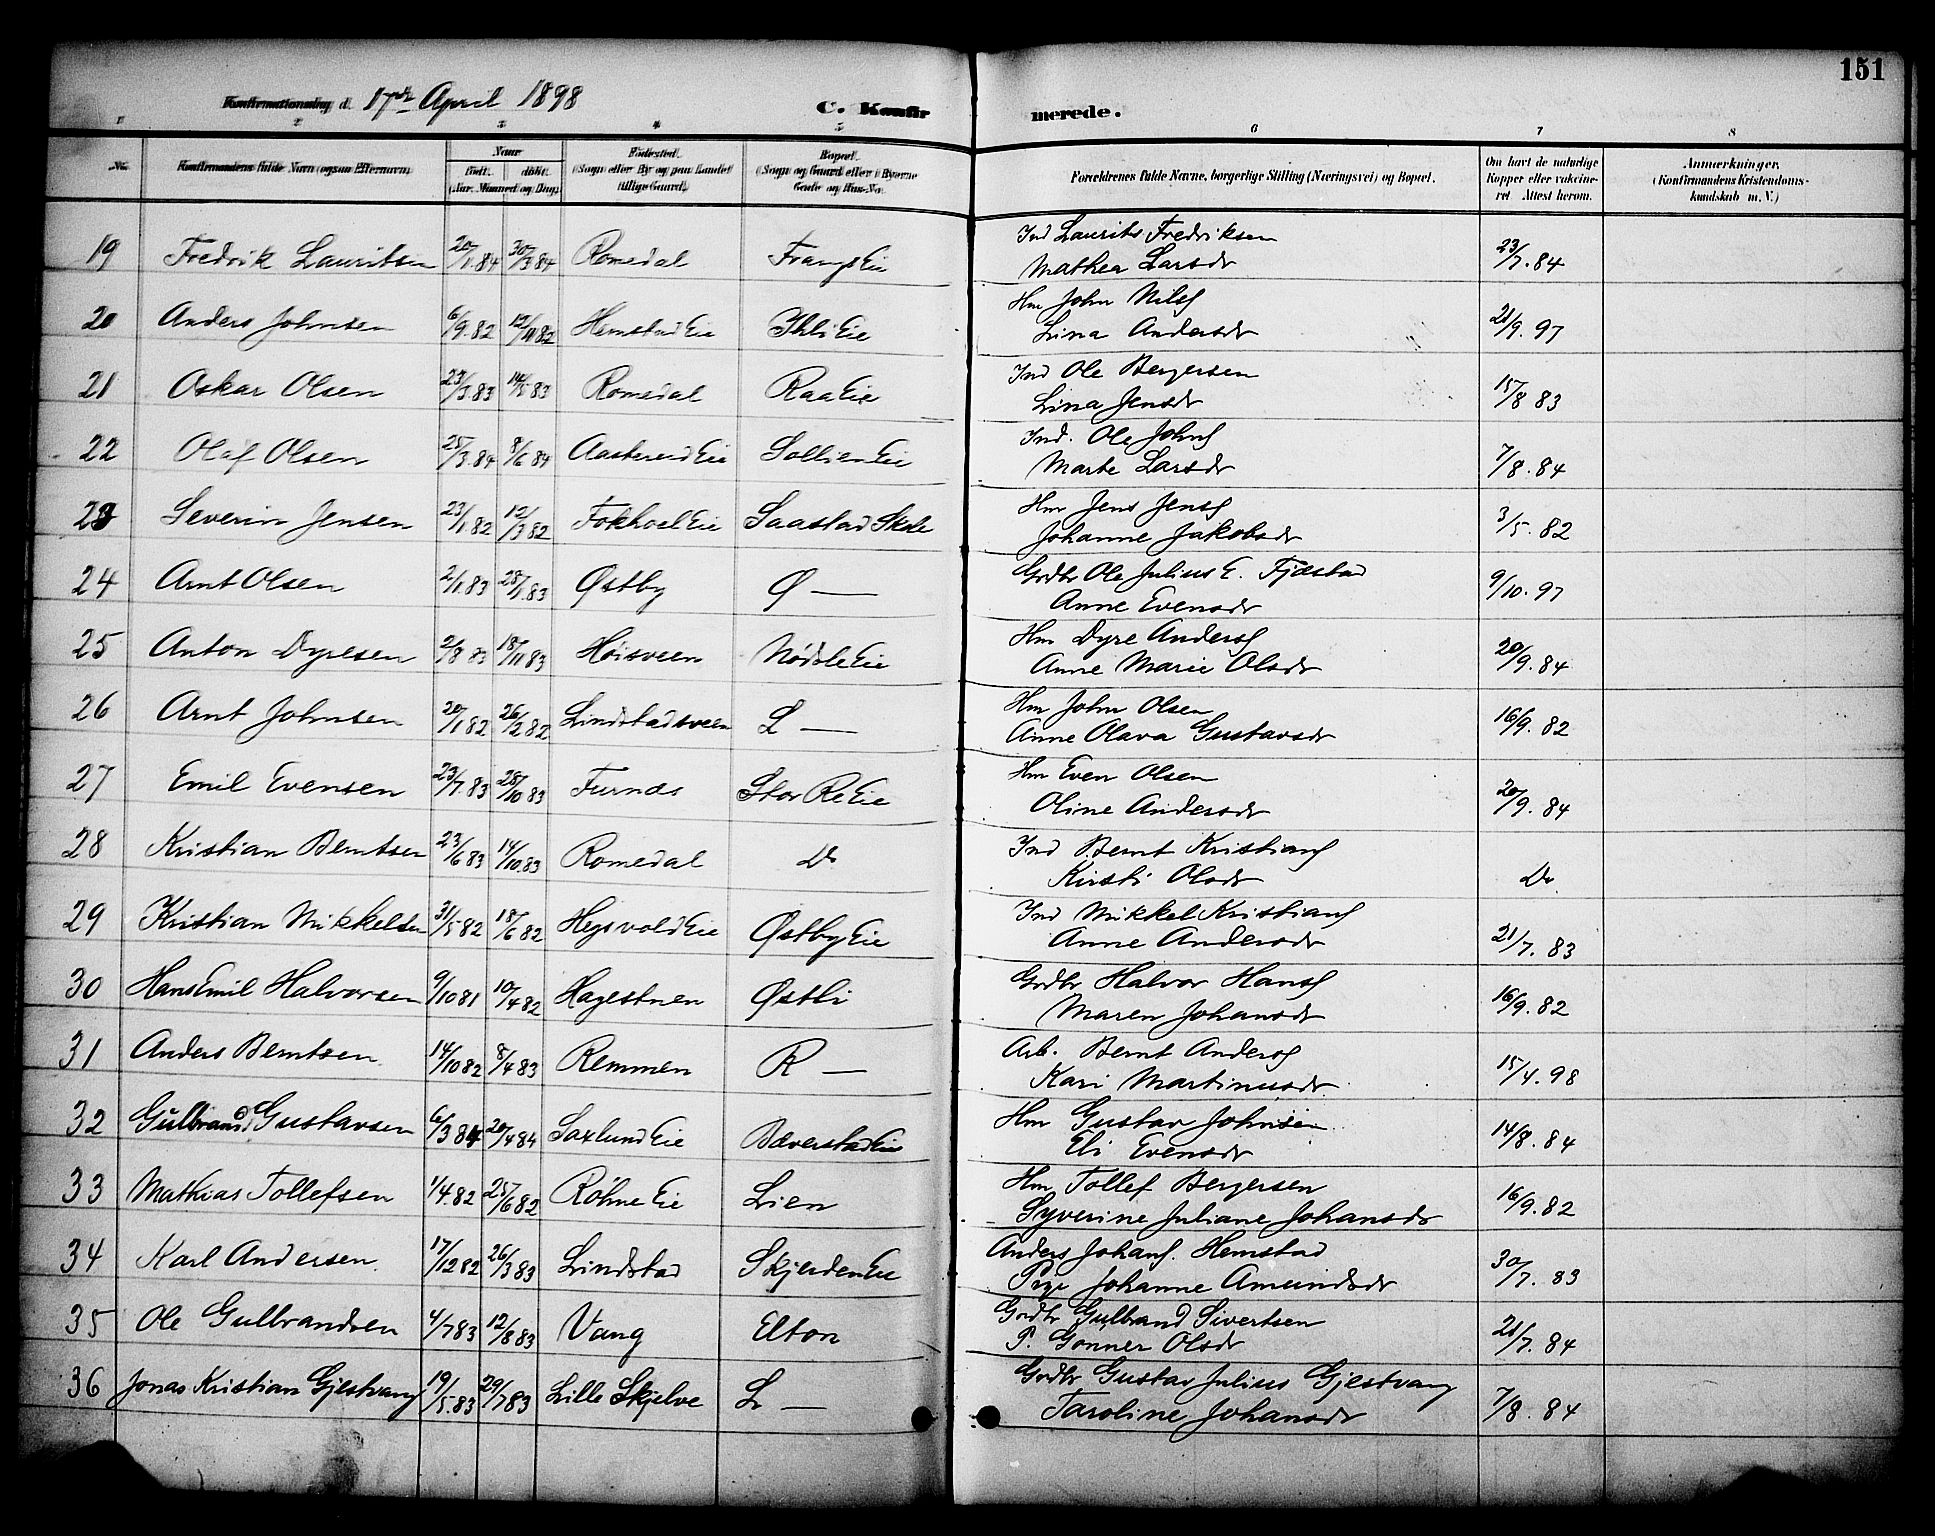 151
Konfirmationsdag d. 17de April 1898
C. Konfirmerede.
1 2 3 4 5 6 7 8
No. Konfirmandens fulde Navn (ogsaa Efternavn). Naar Födested. Bopæl. Forældrenes fulde Navne, borgerlige Stilling (Næringsvei) og Bopæl. Om havt de naturlige Anmærkninger.
födt. döbt. (Sogn eller By og paa Landet (Sogn og Gaard eller i Byerne Kopper eller vakcine- (Konfirmandens Kristendoms-
(Aar, Maaned og Dag). tillige Gaard). Gade og Hus-No. ret. Attest herom. kundskab m. V.)
19 Fredrik Lauritsen 20/1.84 30/3 84 Romedal FrangsEie Ind Laurits Fredriksen
Mathea Larsdr 23/7.84
20 Anders Johnsen 6/9.82 12/11 82 HemstadEie IhliEie Hm John Nilsf
Lina Andersdr 21/9.97
21 Oskar Olsen 23/3.83 14/5 83 Romedal RaaEie Ind Ole Bergersen
Lina Jensdr 15/8 83
22 Olaf Olsen 25/3.84 8/6 84 AastereudEie SollienEie Ind. Ole Johnf
Marte Larsdr 7/8.84
23 Severin Jensen 23/1 82 12/3 82 FokholEie Saastad Skole Hm Jens Jensf
Johanne Jakobsdr 3/5.82
24 Arnt Olsen 2/1.83 28/1.83 Østby Ø — Grdbr Ole Julius E. Fjæstad
Anne Evensdr 9/10.97
25 Anton Dyresen 2/8 83 18/11 83 Høisveen NødsleEie Hm Dyre Andersf
Anne Marie Olsdr 20/9.84
26 Arnt Johnsen 20/1 82 26/2 82 Lindstadsveen L — Hm John Olsen
Anne Olava Gustavsdr 16/9.82
27 Emil Evensen 23/7.83 28/10 83 Furnæs Stor ReEie Hm Even Olsen
Oline Andersdr 20/9.84
28 Kristian Berntsen 23/6 83 14/10.83 Romedal Do Ind Bernt Kristianf
Kirsti Olsdr Do
29 Kristian Mikkelsen 31/5 82 18/6 82 HegsvoldEie ØstbyEie Ind Mikkel Kristianf
Anne Andersdr 21/7.83
30 HansEmil Halvorsen 9/10 81 10/4 82 Hagestuen Østli Grdbr Halvor Hansf
Maren Johansdr 16/9.82
31 Anders Berntsen 14/10 82 8/4 83 Remmen R — Arb. Bernt Andersf
Kari Martinusdr 15/4.98
32 Gulbrand Gustavsen 6/3 84 20/4 84 SaxlundEie BæverstadEie Hm Gustav Johnsen
Eli Evensdr 14/8.84
33 Mathias Tollefsen 1/4.82 25/6 82 Røhne Eie Lien Hm Tollef Bergersen
Syverine Juliane Johansdr 16/9.82
34 Karl Andersen 17/12 82 26/3 83 Lindstad SkjerdenEie Anders Johanf. Hemstad
Pige Johanne Amundsdr 30/7.83
35 Ole Gulbrandsen 4/7 83 12/8 83 Vang Elton Grdbr Gulbrand Sivertsen
P. Gønner Olsdr 21/7.84
36 Jonas Kristian Gjestvang 19/5.83 29/7 83 Lille Skjelve L — Grdbr Gustav Julius Gjestvang
Taroline Johansdr 7/8.84